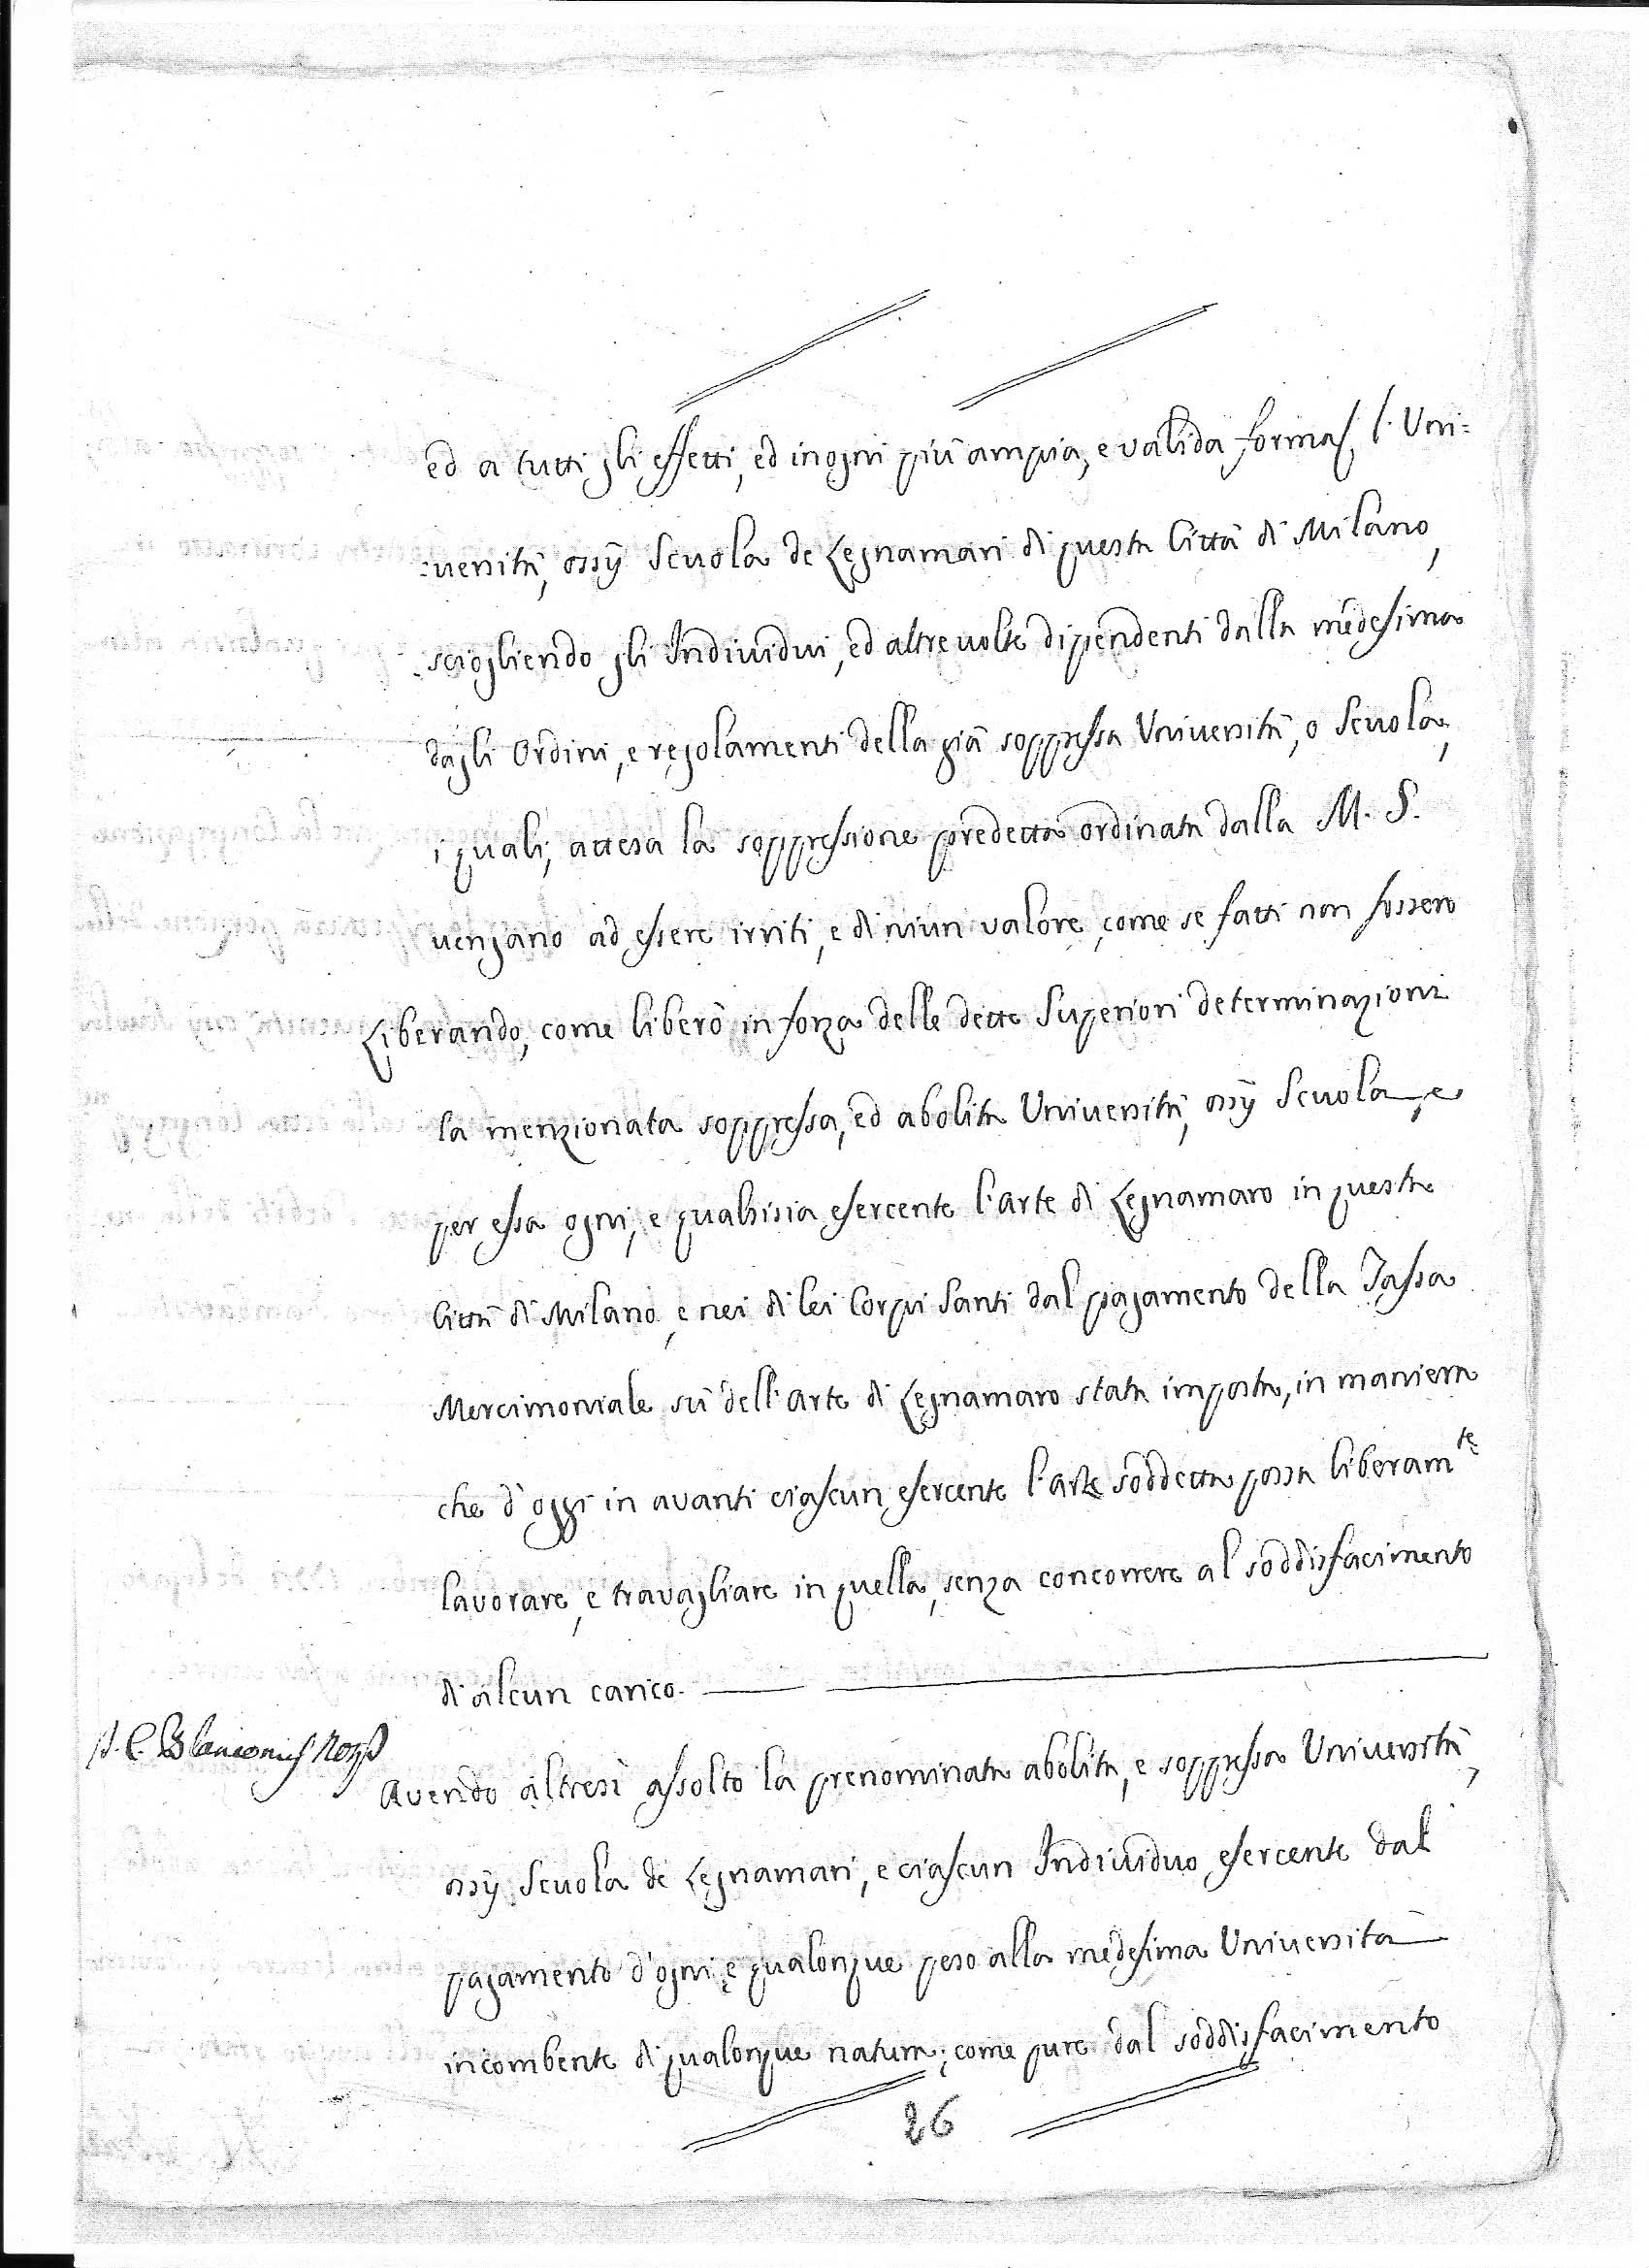 ed a tutti gli effetti, ed in ogni più ampia, e valida forma l'Uni=
:uersità, ossij Scuola de Legnamari di questa Città di Milano,
sciogliendo gli Indiuidui, ed altre uolte dipendenti dalla medesima
dagli Ordini, e regolamenti della già soppressa Uniuersità, o Scuola,
i quali, attesa la soppressione predetta ordinata dalla M. S.
uengano ad essere irriti, e di niun valore, come se fatti non fossero
Liberando, come liberò in forza delle dette Superiori determinazioni
la menzionata soppressa, ed abolita Uniuersità, ossij Scuola, e
per essa ogni, e qualsisia esercente l'arte di Legnamaro in questa
Città di Milano, e nei di lei Corpi Santi dal pagamento della Tassa
Mercimoniale sù dell'arte di Legnamaro stata imposta, in maniera
che d'oggi in avanti ciascun esercente l'arte sòddetta possa liberam.te
lavorare, e travagliare in quella, senza concorrere al soddisfacimento
di alcun carico.
Avendo altresì assolto la prenominata abolita, e soppressa Uniuersità,
ossij Scuola de Legnamari, e ciascun Indiuiduo esercente dal
pagamento d'ogni, e qualonque peso alla medesima Uniuersità
incombente di qualonque natura; come pure dal soddisfacimento
26